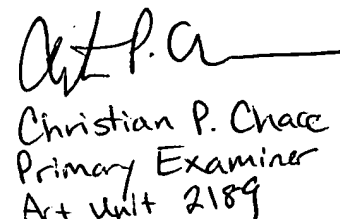 Christian P. Chace
Primary Examiner
Art Unit 2189